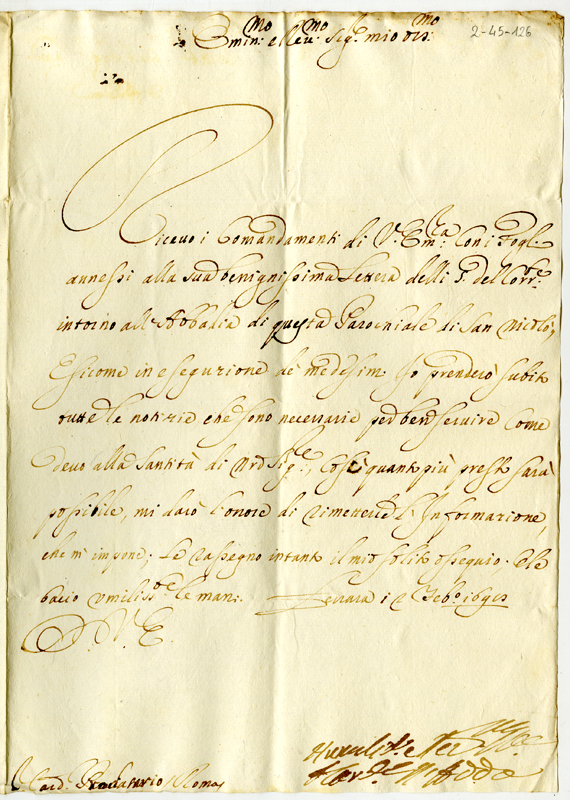 2-45-126
Emin:mo e Rev:mo Sig:r mio oss:mo
Ricevo i Comandamenti di V. Em:za con i Fogl.
annessi alla sua benignissima Lettera delli 5. del Corr:te
intorno all'Abbatia di questa Parochiale di San Nicolò,
E sicome in esequzione de medesim. Io prenderò subito
tutte le notizie che sono necessarie per ben servire come
devo alla Santità di Nro Sig:re, Così quanto più presto sarà
possibile, mi darò l'onore di rimetterle l'Informazione,
che m'impone; Le rassegno intanto il mio solito ossequio. e le
bacio umiliss:te le man:. Ferrara
D. V. E.
Humiliss:o et
Card. Prodatario Roma